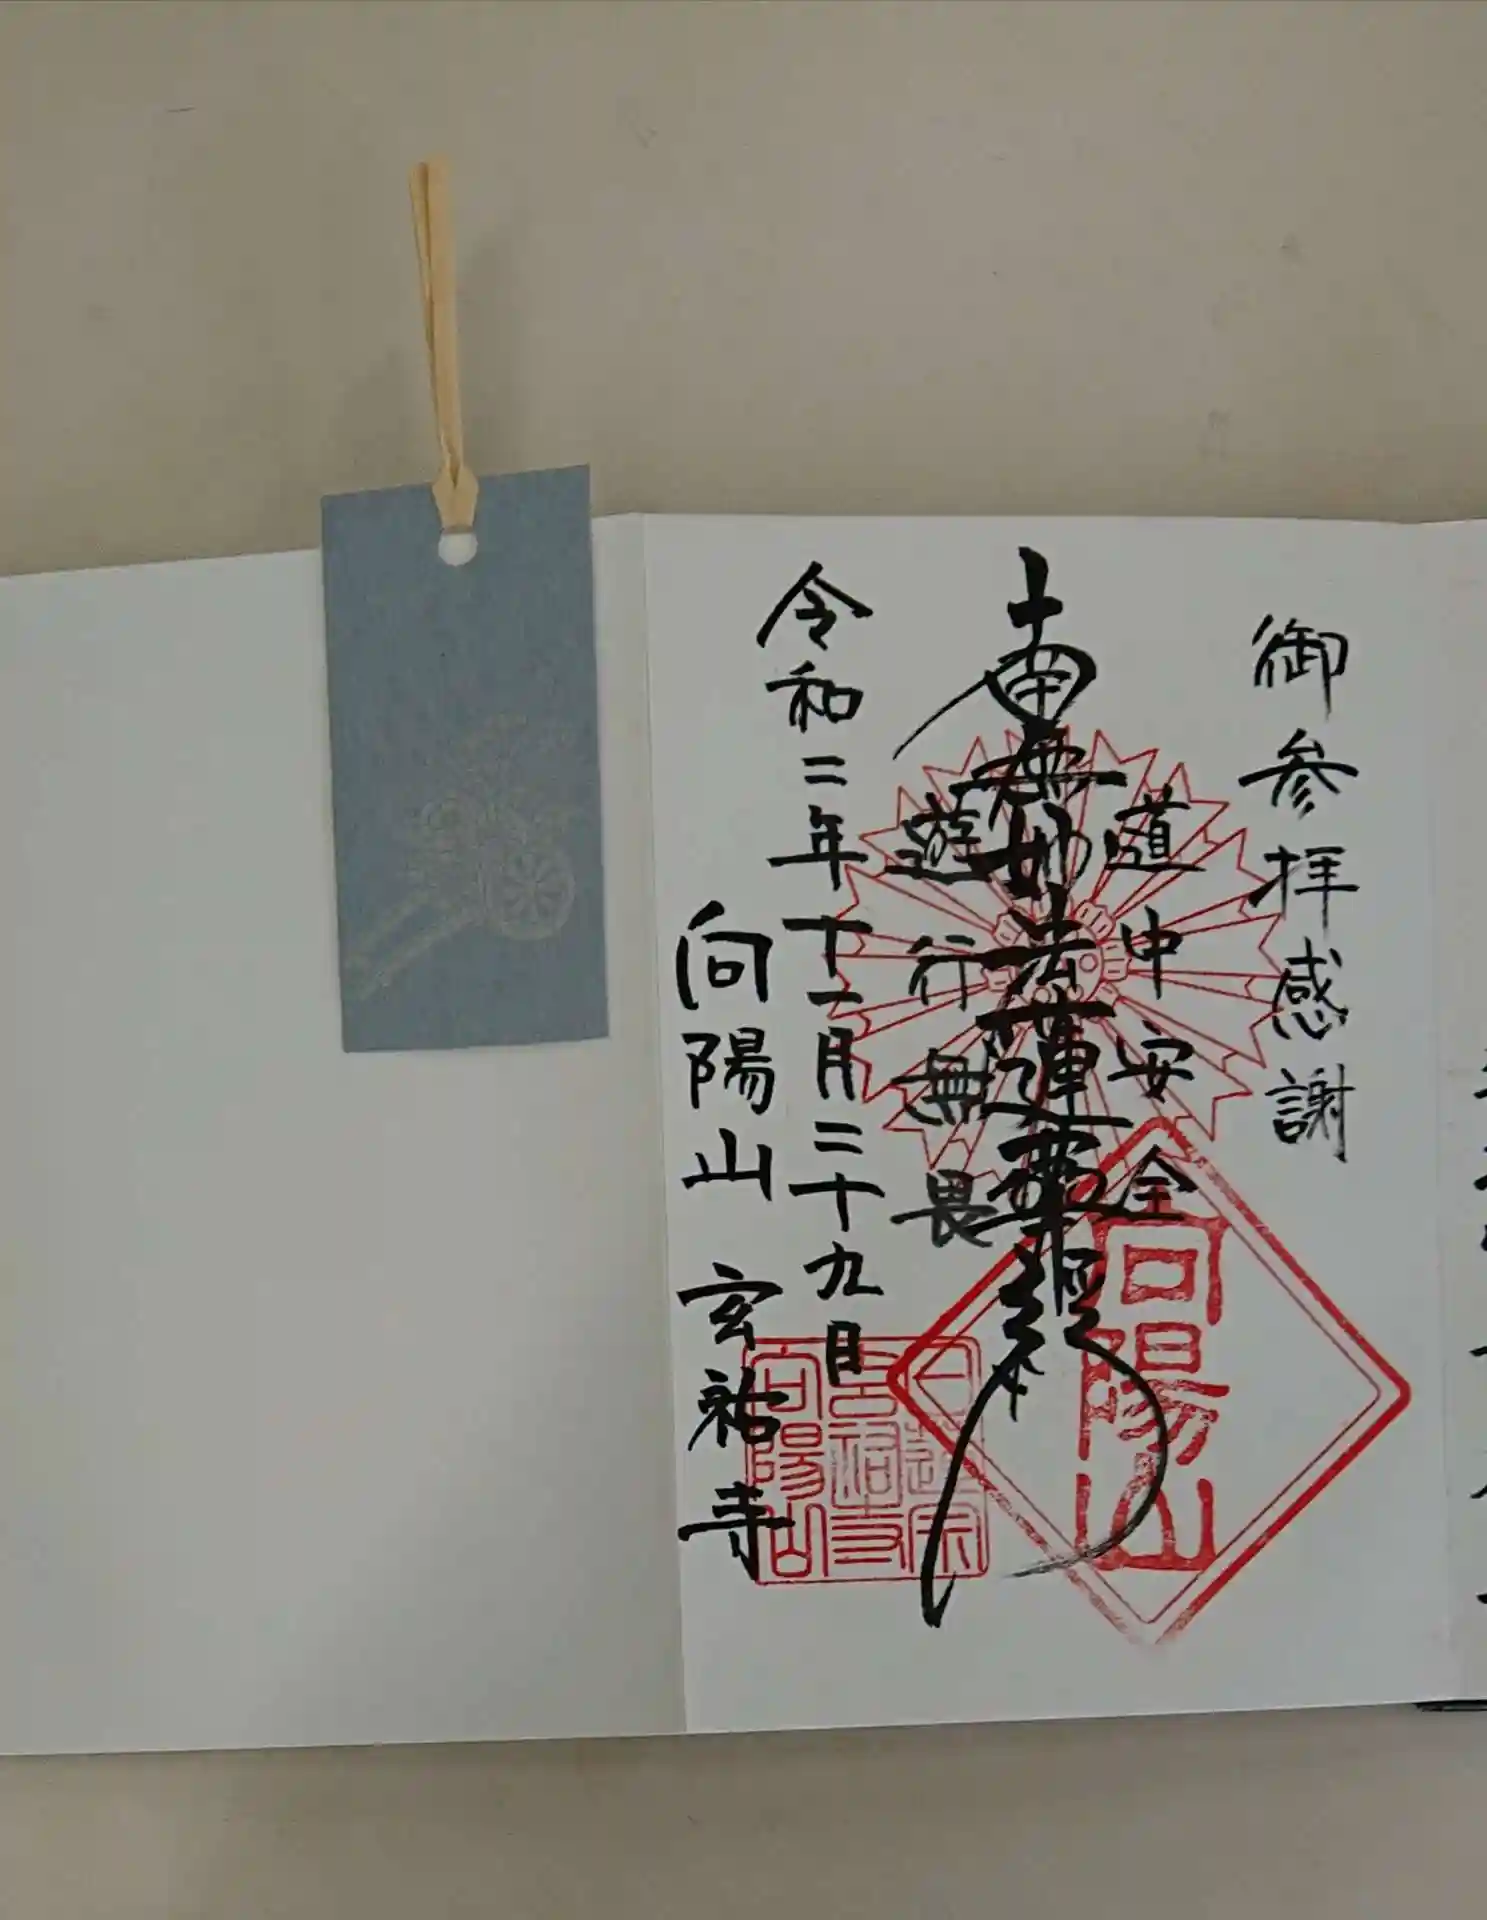 御参拝感謝
道中安全
南無妙法蓮華経
遊行無畏
令和二年十一月二十九日
向陽山 玄祐寺
向陽山
日蓮宗
玄祐寺
向陽山